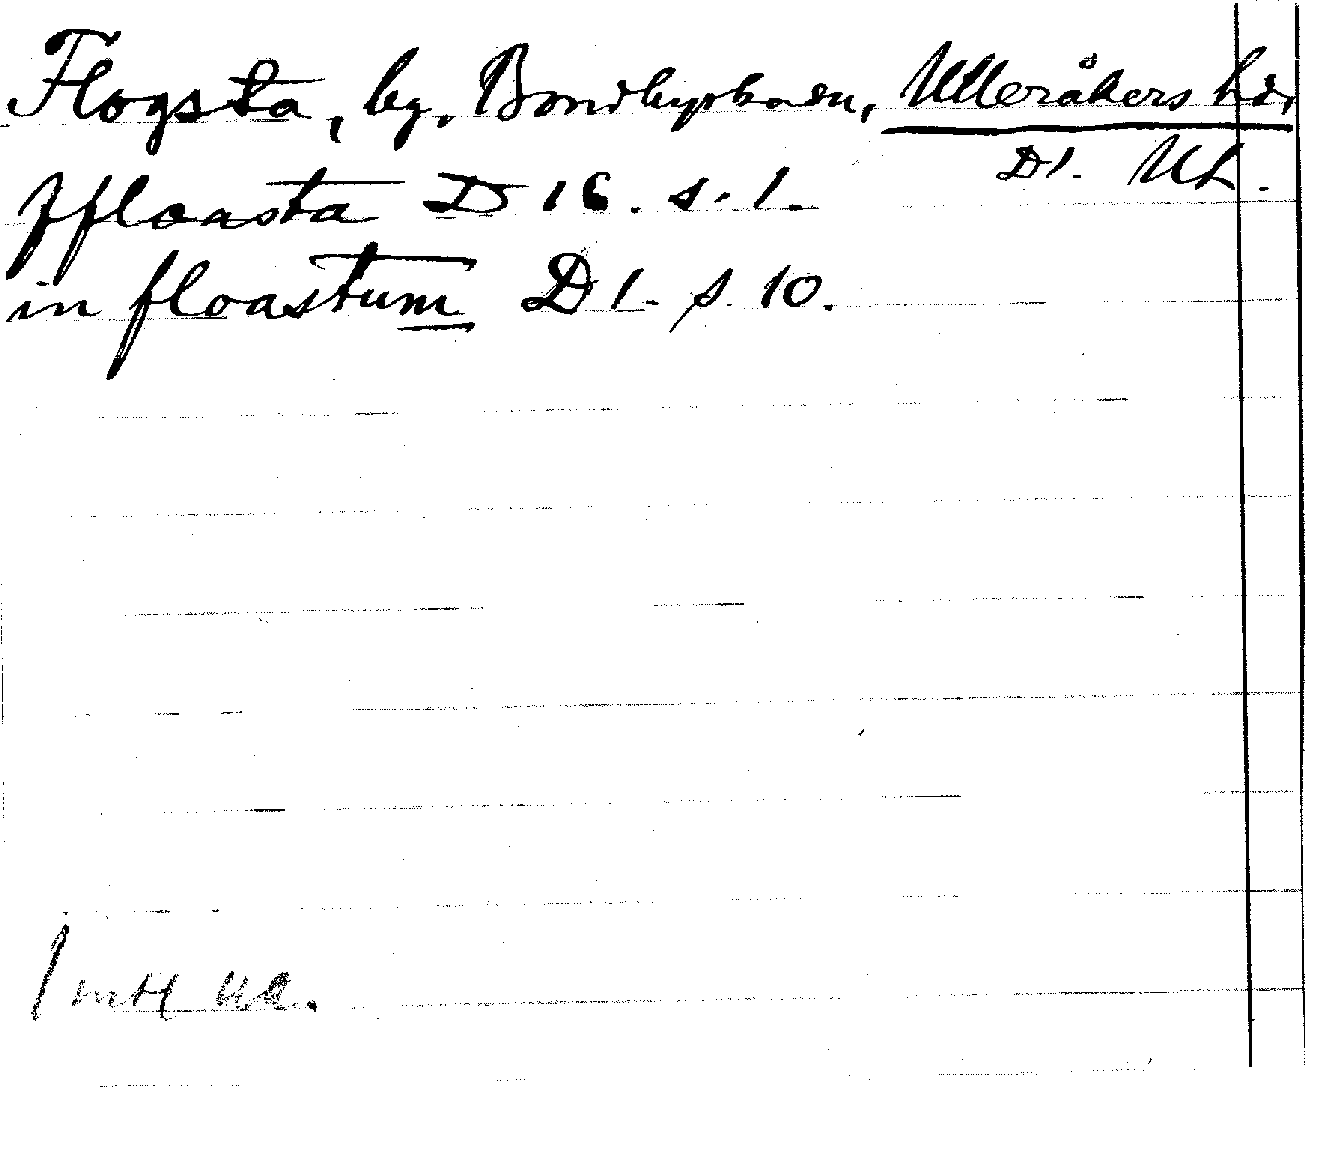 Flogsta, by. Bondkyrko sn, Ulleråkers hd,
D1. UL.
ffloasta D 16. s. 1.
in floastum D 1. s. 10.